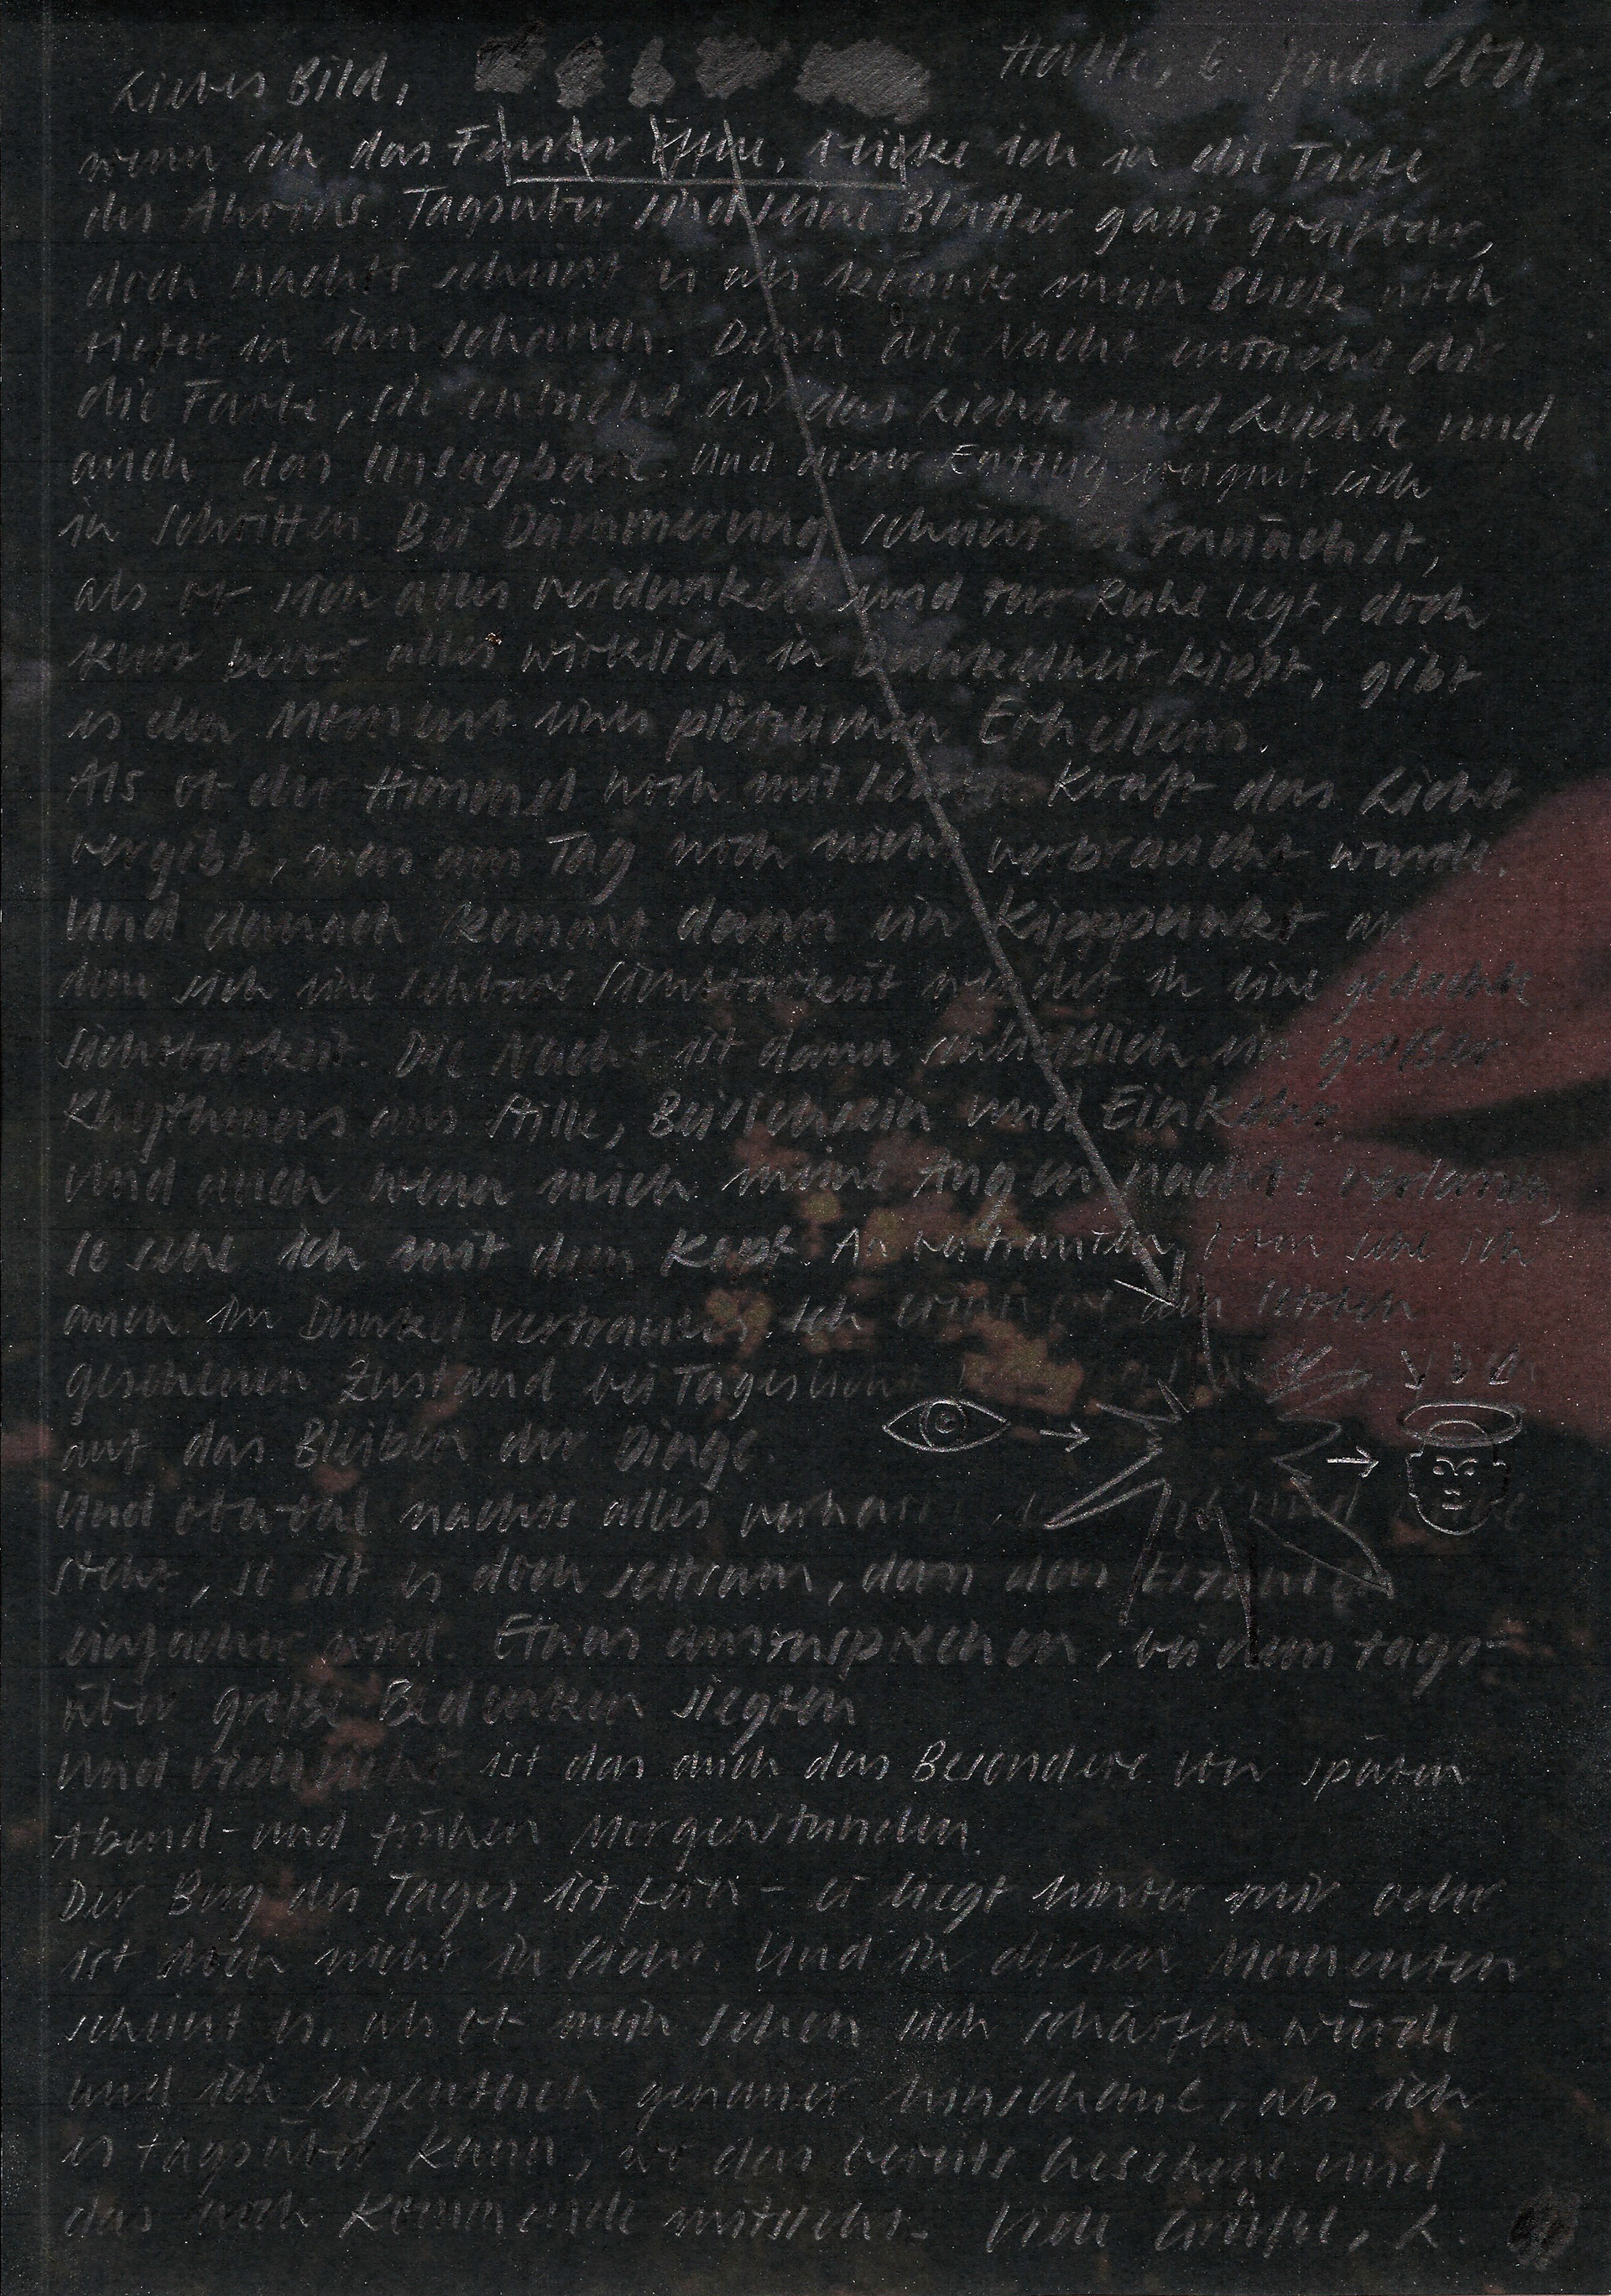 Halle, 6. Juli 2021
Liebes Bild,
wenn ich das Fenster öffne, blicke ich in die Tiefe
des Ahorns. Tagsüber sind seine Blätter ganz greifbar,
doch nachts scheint es als könnte mein Blick noch
tiefer in ihn schauen. Denn die Nacht entzieht dir
die Farbe, sie entzieht dir das Lichte und Leichte und
auch das Unsagbare. Und dieser Entzug ereignet sich
in Schritten. Bei Dämmerung scheint es zunächst,
als ob sich alles verdunkelt und zur Ruhe legt, doch
kurz bevor alles wirklich in Dunkelheit kippt, gibt
es den Moment eines plötzlichen Erhellens.
Als ob der Himmel noch mit letzter Kraft das Licht
vergibt, was am Tag noch nicht verbraucht wurde.
Und danach kommt dann ein Kipppunkt an
dem sich eine sehbare Sichtbarkeit wendet in eine gedachte
Sichtbarkeit. Die Nacht ist dann schließlich ein großer
Rhythmus aus Stille, Beisichsein und Einkehr,
und auch wenn mich meine Augen nachts verlassen,
so sehe ich mit dem Kopf. An vertrauten Orten sehe ich
auch im Dunkel Vertrautes. Ich erinnere den letzten
gesehenen Zustand bei Tageslicht
auf das Bleiben der Dinge.
Und obwohl nachts alles
steht, so ist es doch seltsam, dass das Erzählen
einfacher wird. Etwas auszusprechen, bei dem tags-
über große Bedenken siegten
Und vielleicht ist das auch das Besondere von späten
Abend- und frühen Morgenstunden.
Der Berg des Tages ist fern – er liegt hinter mir oder
ist noch nicht in Sicht. Und in diesen Momenten
scheint es, als ob mein Sehen sich schärfen würde
und ich eigentlich genauer hinschaue, als ich
es tagsüber kann, wo das bereits Gesehene und
das noch Kommende mitsieht. Viele Grüße, L.